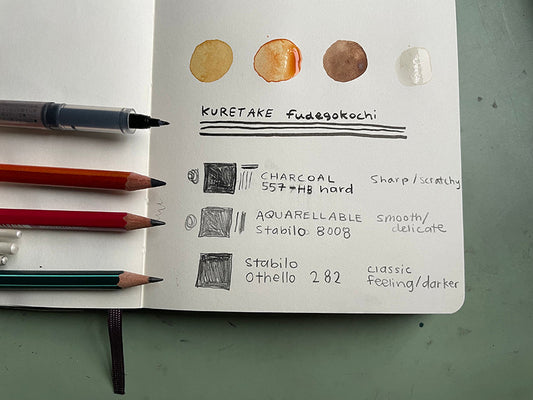 KURETAKE fudegokochi
CHARCOAL
557-HB hard
Sharp/scratchy
AQUARELLABLE
Stabilo 8008
smooth/
delicate
Stabilo
Othello 282
classic
feeling/darker